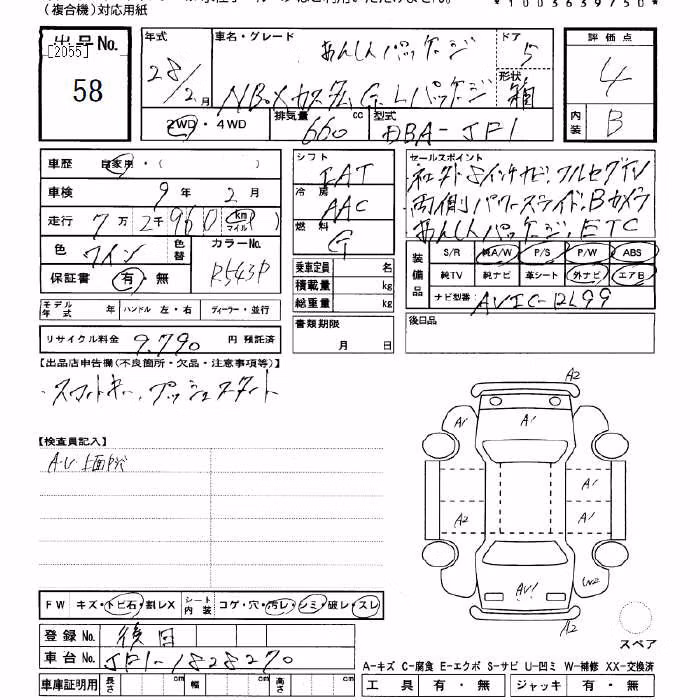 (複合機)対応用紙
*1003639750*
出品No.
[2055]
58
年式
28/2月
車名・グレード
あんしんパッケージ
NBOXカスタム G Lパッケージ
ドア
5
形状
箱
評価点
4
内装
B
2WD・4WD
排気量
660cc
型式
DBA-JF1
車歴 自家用・( )
車検 9年 2月
走行 7万 2千 960 km マイル
色 ワイン 色替 カラーNo. R543P
保証書 有・無
モデル年式 年 ハンドル 左・右 ディーラー・並行
リサイクル料金 9.790 円 預託済
シフト
FAT
冷房
AAC
燃料
G
乗車定員 名
積載量 kg
総重量 kg
書類期限
月 日
セールスポイント
社外8インチナビ、フルセグTV
両側パワースライド、Bカメラ
あんしんパッケージ、ETC
装備品
S/R 純A/W P/S P/W ABS
純TV 純ナビ 革シート 外ナビ エアB
ナビ型番 AVIC-RL99
後日品
【出品店申告欄(不良箇所・欠品・注意事項等)】
・スマートキー、プッシュスタート
【検査員記入】
A・U 上面
A2
A1
A1
A1
A2
A1
AU1
A2
FW キズ・トビ石・割レX シート内装 コゲ・穴・汚レ・シミ・破レ・スレ
登録No. 後日
車台No. JF1-1828270
車庫証明用 長さ cm 幅 cm 高さ cm
スペア
A-キズ C-腐食 E-エクボ S-サビ U-凹ミ W-補修 XX-交換済
工具 有・無 ジャッキ 有・無